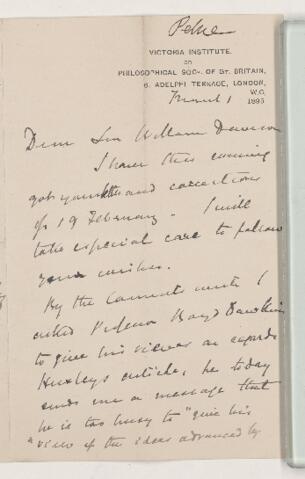 VICTORIA INSTITUTE,
OR
PHILOSOPHICAL SOCY. OF GT. BRITAIN,
8, ADELPHI TERRACE, LONDON,
W.C.
March 1 1895
Dear Sir William Dawson
I have this evening
got your letter and corrections
of 19 February. I will
take especial care to follow
your wishes.
By the same I
asked Professor Boyd Dawkins
to give his views as regards
Huxleys article, he today
sends me a message that
he is too busy to "give his
"view of the ideas advanced by